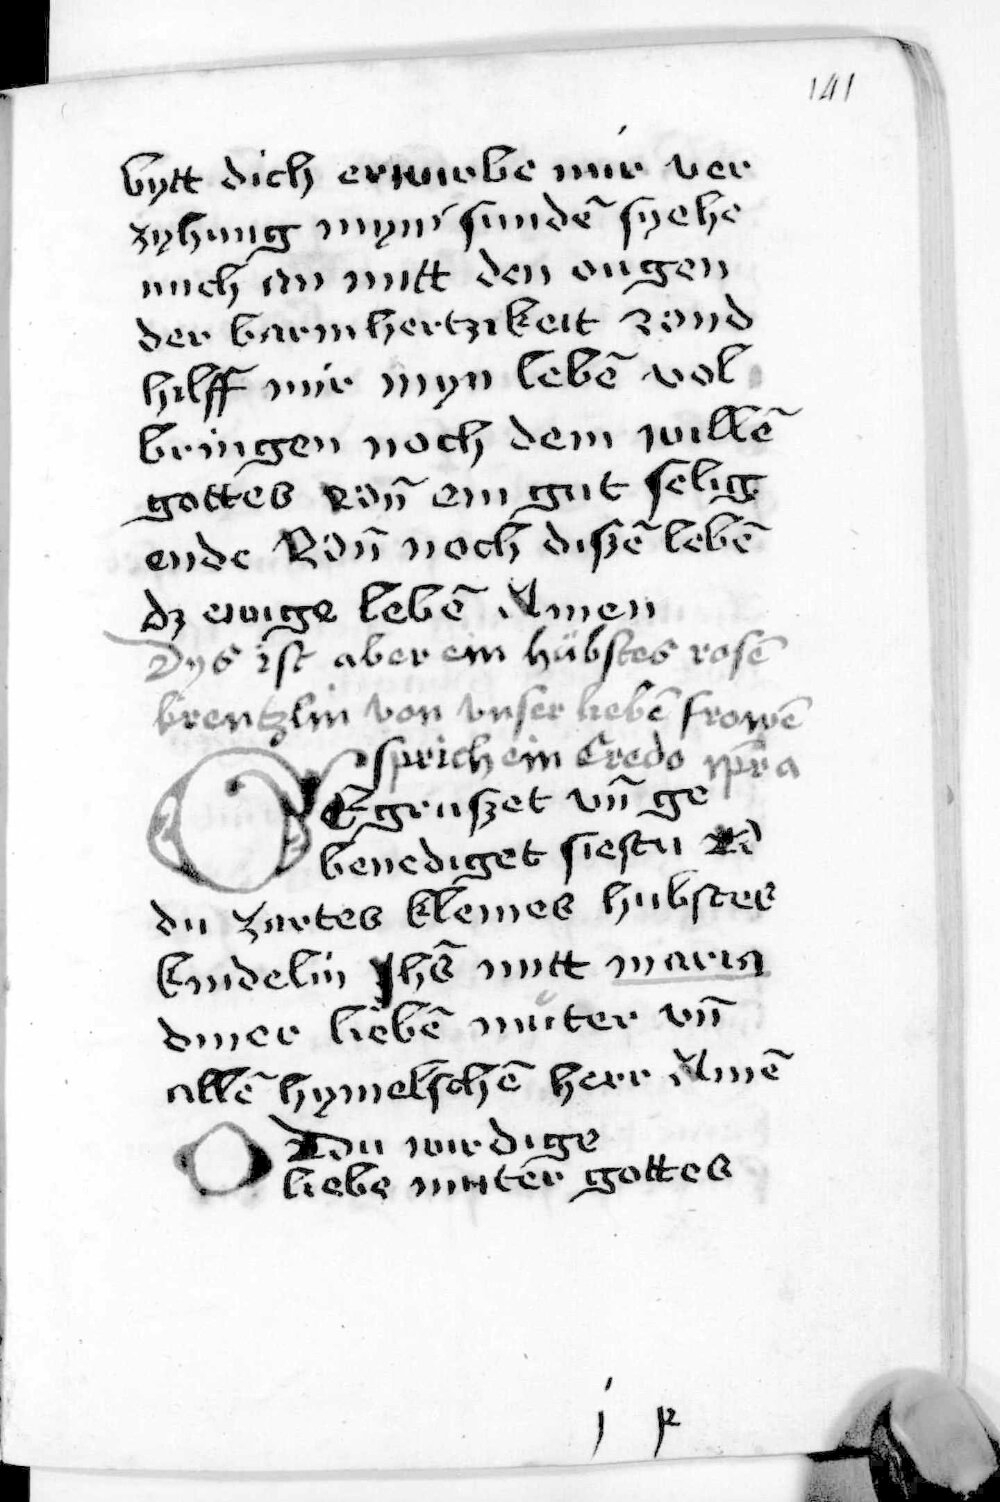 141
bytt dich erwurbe mir ver
zyhung myner sundē syehe
mich an mitt den ougen
der barmhertzikeit vnd
hilff mir myn lebē vol
bringen noch dem willē
gottes vn̄ ein gut selig
ende vn̄ noch dißē lebē
dz ewige lebē Amen
Dys ist aber ein hübstes rosē
krentzlin von vnser liebē frowē
sprich ein Credo
Egrußet vn̄ ge
benediget siestu
du zartes kleines hubstes
kindelin Jhē mitt maria
diner liebē můter vn̄
allē hymelschē herr Amē
O du wirdige
liebe muter gottes